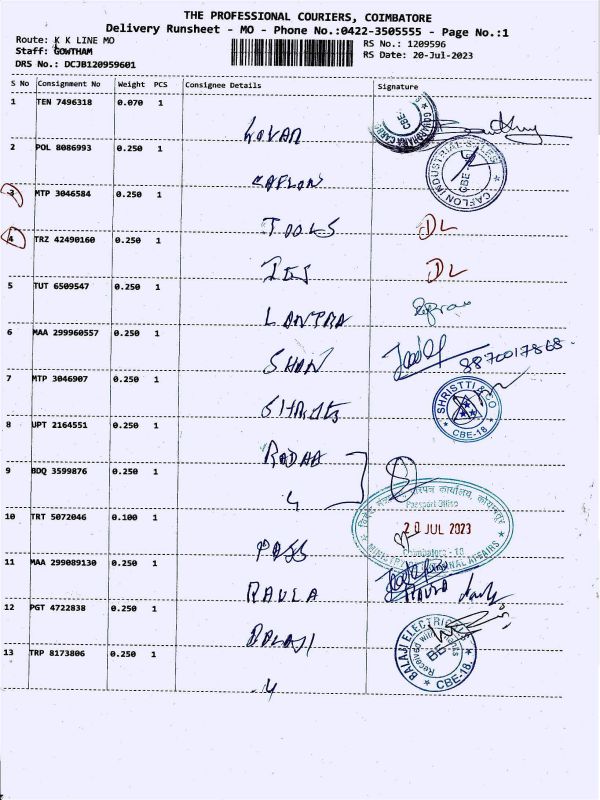 THE PROFESSIONAL COURIERS, COIMBATORE
Delivery Runsheet - MO - Phone No.:0422-3505555 - Page No.:1
Route: K K LINE MO
Staff: GOWTHAM
DRS No.: DCJB120959601
RS No.: 1209596
RS Date: 20-Jul-2023
S No Consignment No Weight PCS Consignee Details Signature
1 TEN 7496318 0.070 1
CBE
2 POL 8086993 0.250 1 CAFLON
CAFLON INDUSTRIAL SALES CBE
3 MTP 3046584 0.250 1 TOOLS DL
4 TRZ 42490160 0.250 1 DL
5 TUT 6509547 0.250 1 LANTRA
6 MAA 299960557 0.250 1 SHAN 8870017868
7 MTP 3046907 0.250 1
SHRISTTI & CO CBE-18
8 UPT 2164551 0.250 1 RADHA
9 BDQ 3599876 0.250 1 4
10 TRT 5072046 0.100 1 PASS
Passport Office
20 JUL 2023
Coimbatore - 18
11 MAA 299089130 0.250 1 RAULA RAULA
12 PGT 4722838 0.250 1 BALAJI
BALAJI ELECTRICALS
Received with
CBE-18.
13 TRP 8173806 0.250 1 4